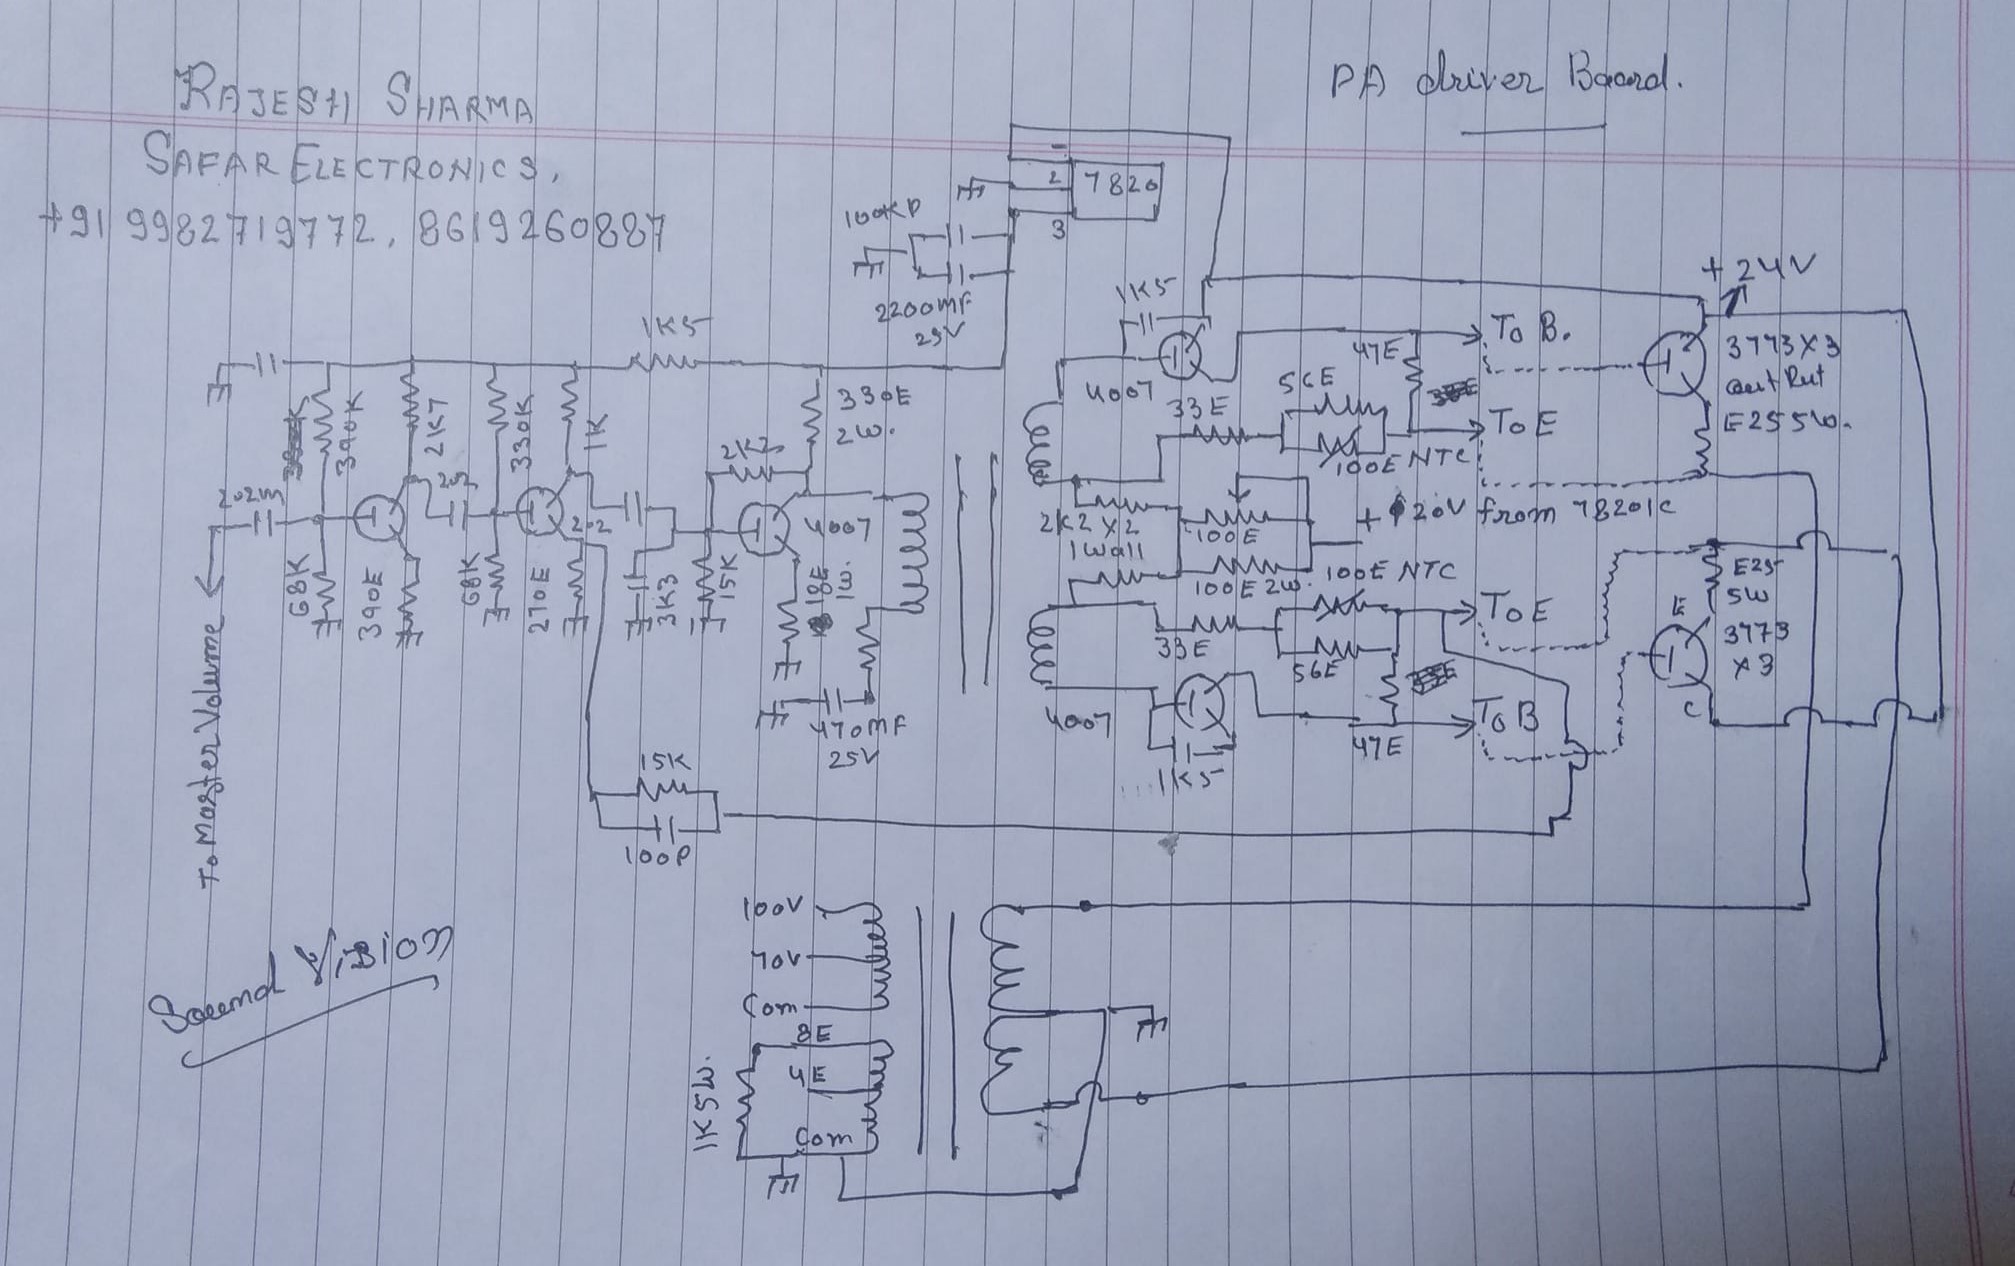 RAJESH SHARMA
SAFAR ELECTRONICS,
+91 9982719772, 8619260887
PA driver Board.
2
7820
3
100KP
2200MF
25V
1K5
390K
2K7
330K
1K
68K
390E
68K
270E
2.2
3K3
15K
2K2
330E
2W.
4007
18E
1W.
470MF
25V
15K
100P
To Master Volume
1K5
4007
33E
56E
100E NTC
47E
To B.
To E
+24V
3773X3
outPut
E25 5W.
2K2 X2
1Watt
100E
100E 2W.
+ 20V from 7820IC
100E NTC
33E
56E
To E
47E
To B
4007
1K5
E25
5W
E
3773
X3
C
100V
70V
Com
8E
4E
Com
1K5W.
Sound Vision